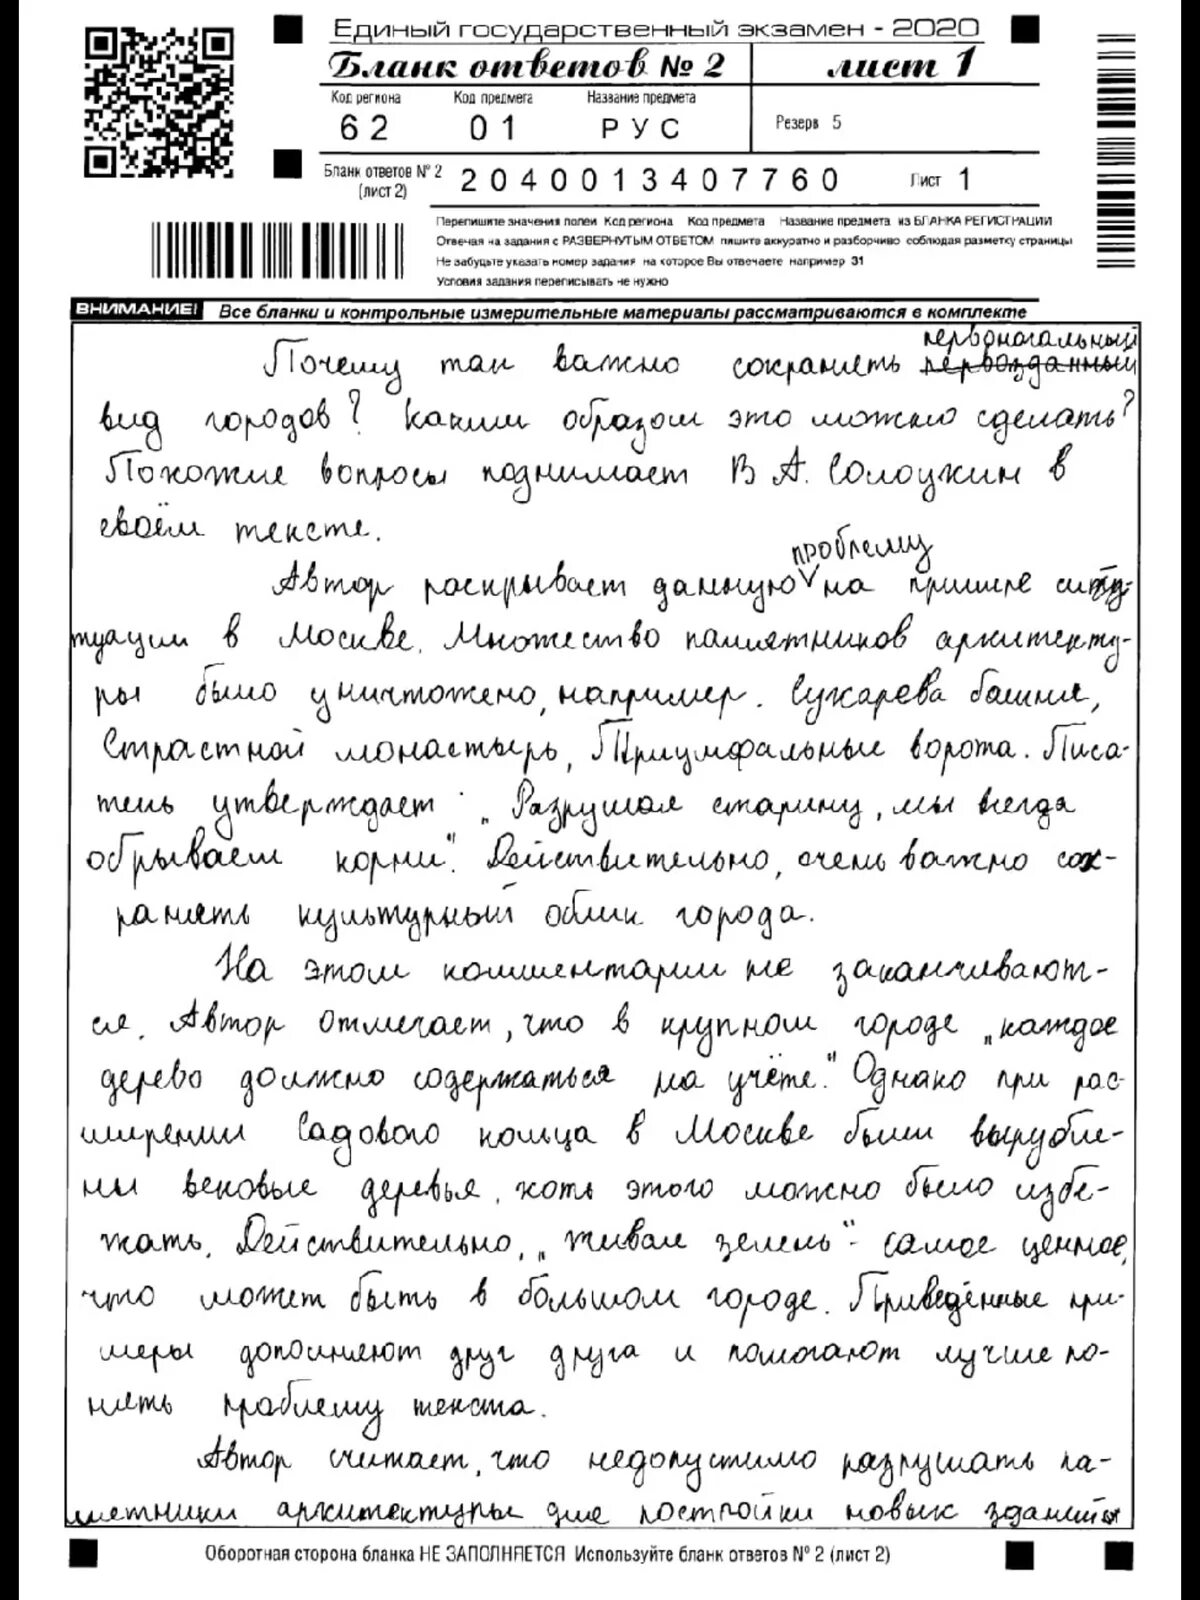 Единый государственный экзамен - 2020
Бланк ответов № 2 лист 1
Код региона Код предмета Название предмета
62 01 РУС Резерв 5
Бланк ответов № 2 (лист 2) 2040013407760 Лист 1
Перепишите значения полей Код региона Код предмета Название предмета из БЛАНКА РЕГИСТРАЦИИ
Отвечая на задания с РАЗВЕРНУТЫМ ОТВЕТОМ пишите аккуратно и разборчиво соблюдая разметку страницы
Не забудьте указать номер задания на которое Вы отвечаете например 31
Условия задания переписывать не нужно
ВНИМАНИЕ! Все бланки и контрольные измерительные материалы рассматриваются в комплекте
первоначальный
Почему так важно сохранять первозданный
вид городов? Каким образом это можно сделать?
Похожие вопросы поднимает В А. Солоухин в
своём тексте.
проблему
Автор раскрывает данную на примере ситу-
туации в Москве. Множество памятников архитекту-
ры было уничтожено, например. Сухарева башня,
Страстной монастырь, Триумфальные ворота. Писа-
тель утверждает: „Разрушая старину, мы всегда
обрываем корни". Действительно, очень важно сох-
ранять культурный облик города.
На этом комментарии не заканчивают-
ся. Автор отмечает, что в крупном городе „каждое
дерево должно содержаться на учёте." Однако при рас-
ширении Садового кольца в Москве были вырубле-
ны вековые деревья, хоть этого можно было избе-
жать. Действительно, „живая зелень" - самое ценное,
что может быть в большом городе. Приведённые при-
меры дополняют друг друга и помогают лучше по-
нять проблему текста.
Автор считает, что недопустимо разрушать па-
мятники архитектуры для постройки новых зданий
Оборотная сторона бланка НЕ ЗАПОЛНЯЕТСЯ Используйте бланк ответов № 2 (лист 2)